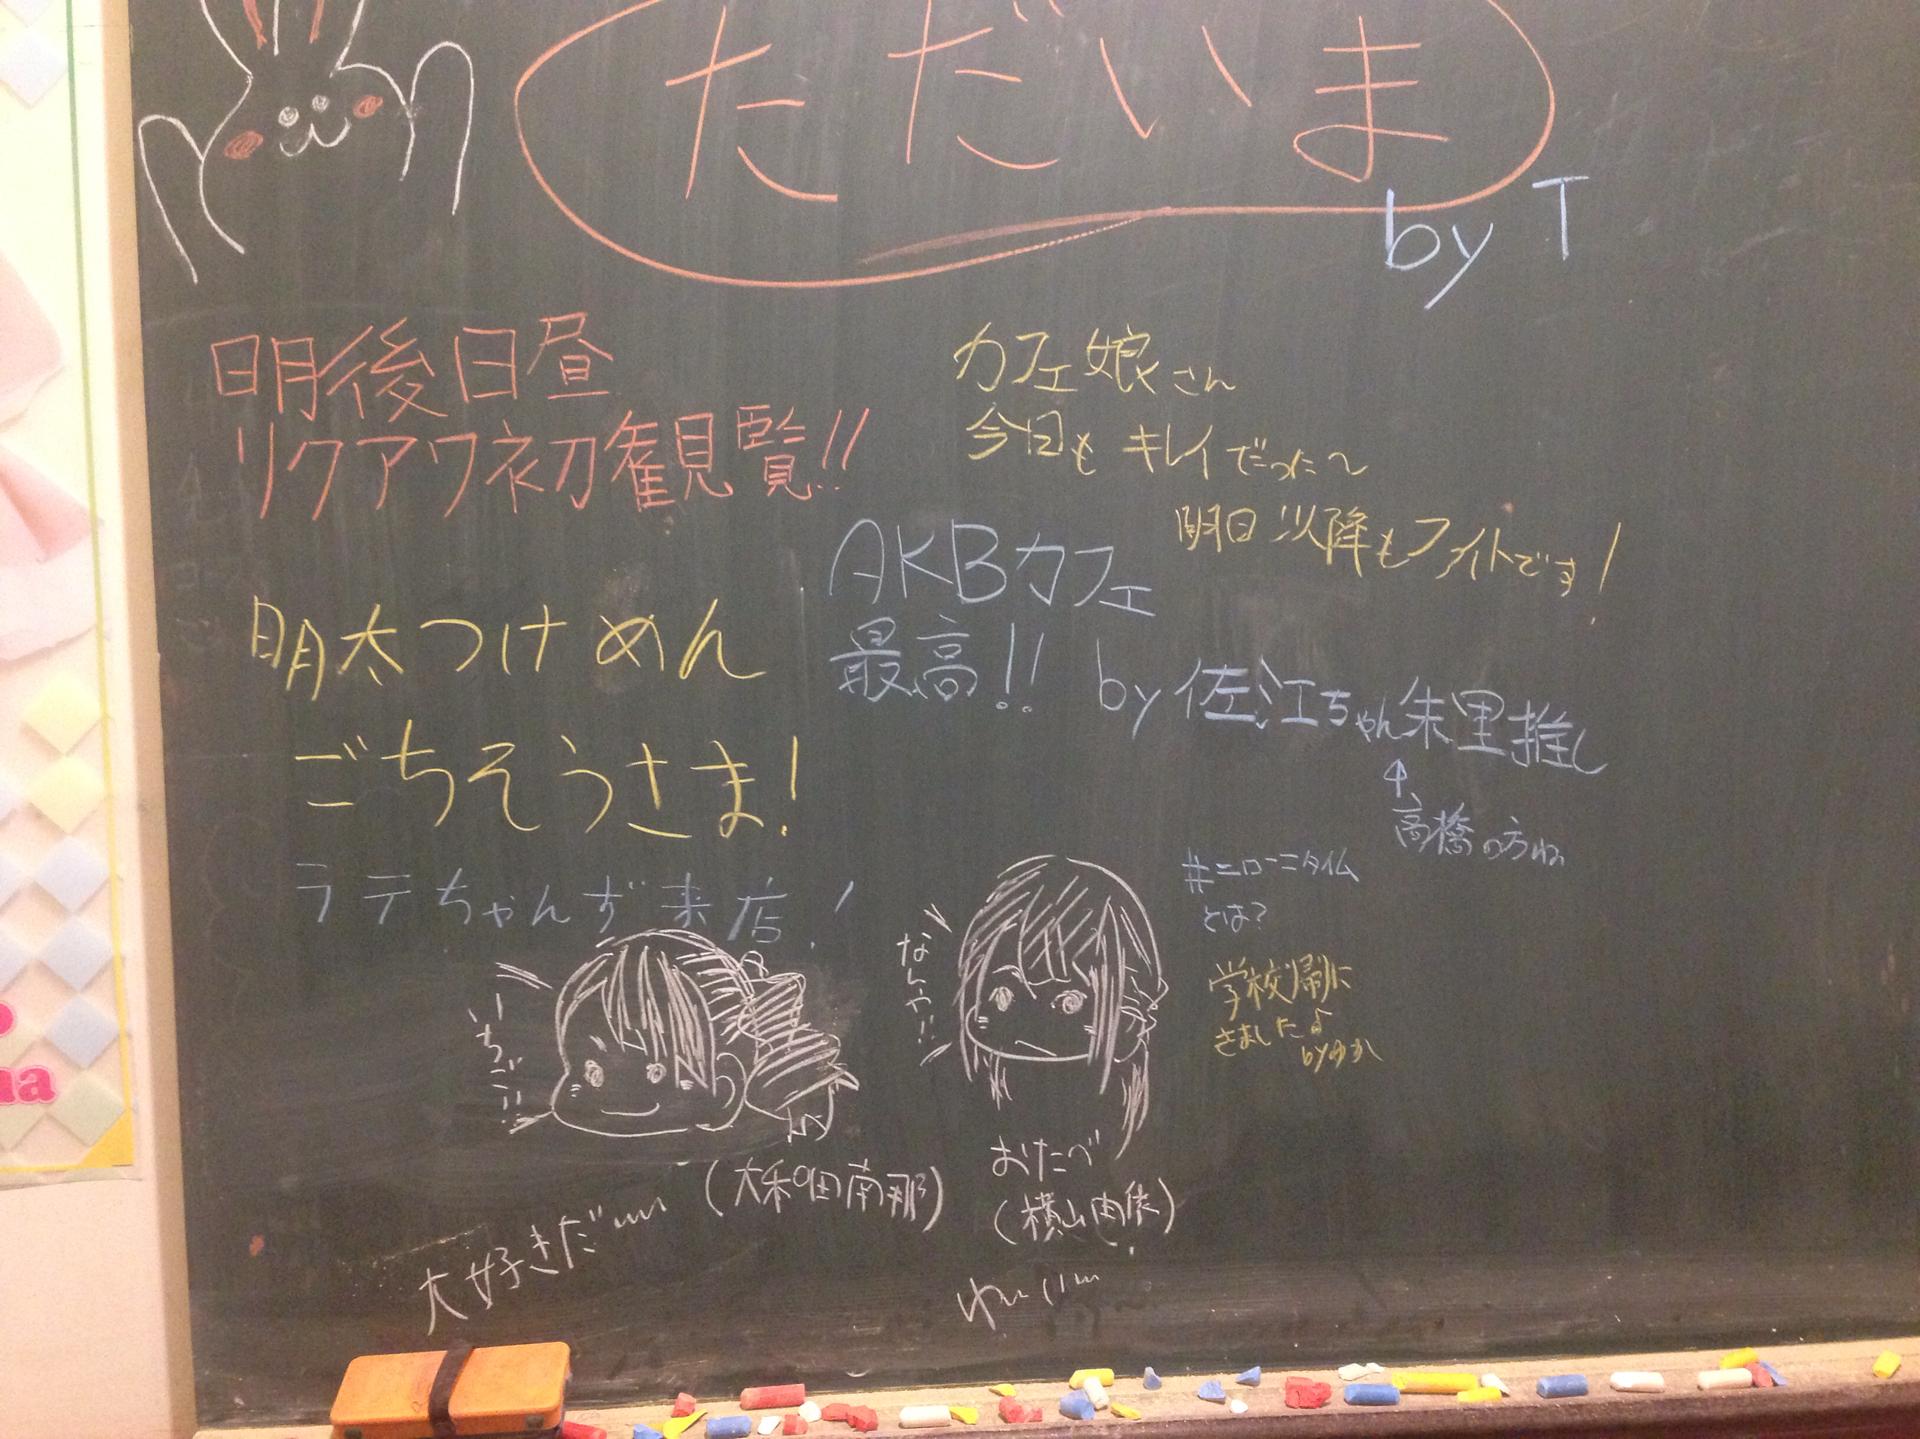 ただいま
by T
明後日昼
リクアワ初観覧!!
カフェ娘さん
今日もキレイだった〜
明日以降もファイトです!
AKBカフェ
最高!!
by 佐江ちゃん朱里推し
↑
高橋の方ね
明太つけめん
ごちそうさま!
ラテちゃんず来店!
#ニローニタイム
とは?
学校帰に
きました♪
byゆか
いちご!!
なんや!!
(大和田南那)
大好きだー
おたべ
(横山由依)
わーいー